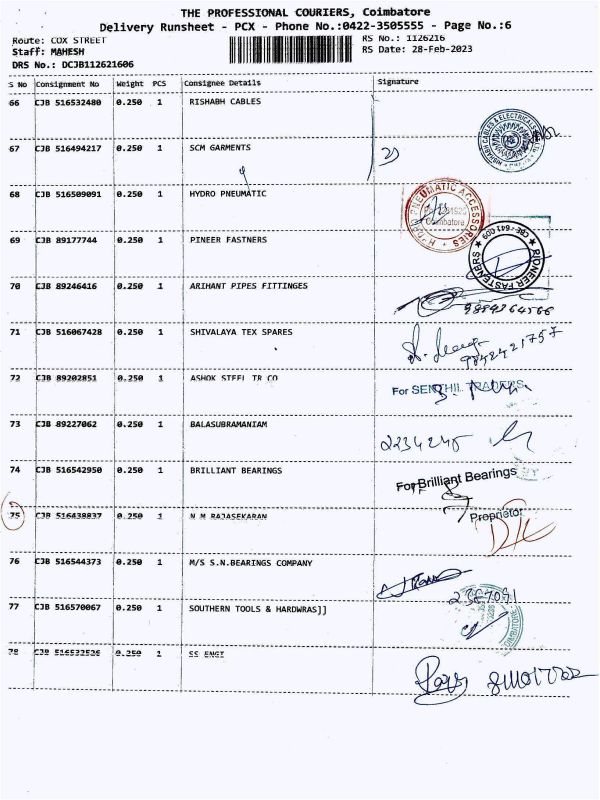 THE PROFESSIONAL COURIERS, Coimbatore
Delivery Runsheet - PCX - Phone No.:0422-3505555 - Page No.:6
Route: COX STREET RS No.: 1126216
Staff: MAHESH RS Date: 28-Feb-2023
DRS No.: DCJB112621606
S No Consignment No Weight PCS Consignee Details Signature
66 CJB 516532480 0.250 1 RISHABH CABLES
67 CJB 516494217 0.250 1 SCM GARMENTS
68 CJB 516509091 0.250 1 HYDRO PNEUMATIC
HYDRO PNEUMATIC ACCESSORIES
Coimbatore
69 CJB 89177744 0.250 1 PINEER FASTNERS
PIONEER FASTENERS ★ CBE-641 009 ★
70 CJB 89246416 0.250 1 ARIHANT PIPES FITTINGES
9894364566
71 CJB 516067428 0.250 1 SHIVALAYA TEX SPARES
9842421757
72 CJB 89202851 0.250 1 ASHOK STEEL TR CO
For SENTHIL TRADERS
73 CJB 89227062 0.250 1 BALASUBRAMANIAM
2234245
74 CJB 516542950 0.250 1 BRILLIANT BEARINGS
For Brilliant Bearings
75 CJB 516438837 0.250 1 N M RAJASEKARAN
Proprietor
76 CJB 516544373 0.250 1 M/S S.N.BEARINGS COMPANY
77 CJB 516570067 0.250 1 SOUTHERN TOOLS & HARDWRAS]]
COIMBATORE
78 CJB 516532526 0.250 1 SS ENGI